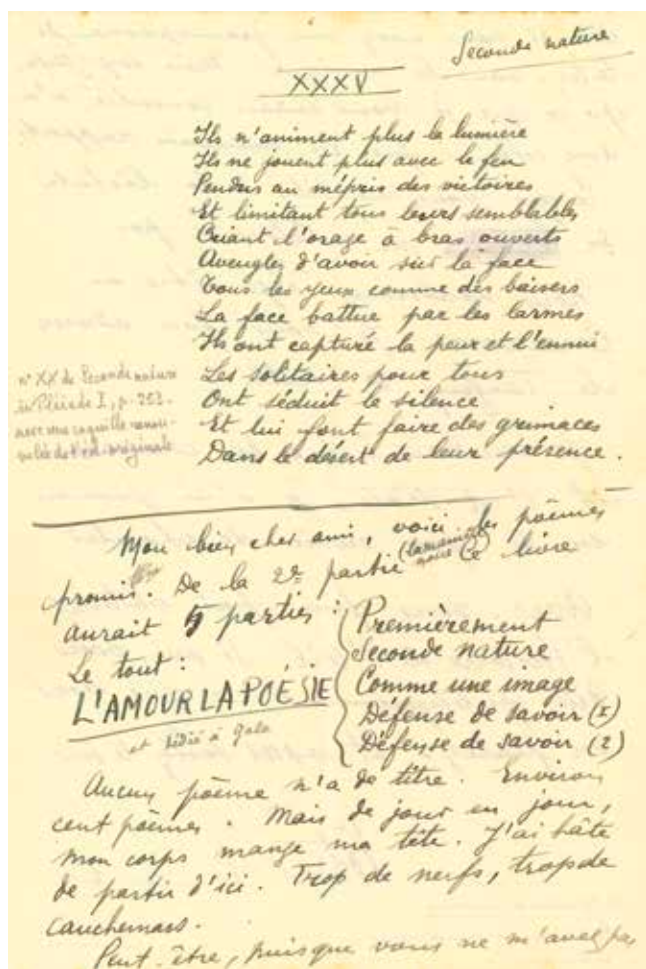 Seconde nature
XXXV
Ils n'animent plus la lumière
Ils ne jouent plus avec le feu
Pendus au mépris des victoires
Et limitant tous leurs semblables
Criant l'orage à bras ouverts
Aveugles d'avoir sur la face
Tous les yeux comme des baisers
La face battue par les larmes
Ils ont capturé la peur et l'ennui
Les solitaires pour tous
Ont séduit le silence
Et lui font faire des grimaces
Dans le désert de leur présence.
n° XX de Seconde nature
in Pléiade I, p. 253.
avec une coquille
de l'éd. originale
Mon bien cher ami, voici les poèmes
promis. De la 2e partie Ce livre
aurait 5 parties :
Premièrement
Seconde nature
Comme une image
Défense de savoir (1)
Défense de savoir (2)
Le tout :
L'AMOUR LA POÉSIE
et dédié à Gala
Aucun poème n'a de titre. Environ
cent poèmes. Mais de jour en jour,
mon corps mange ma tête. J'ai hâte
de partir d'ici. Trop de nerfs, trop de
cauchemars.
Peut-être, puisque vous ne m'avez pas